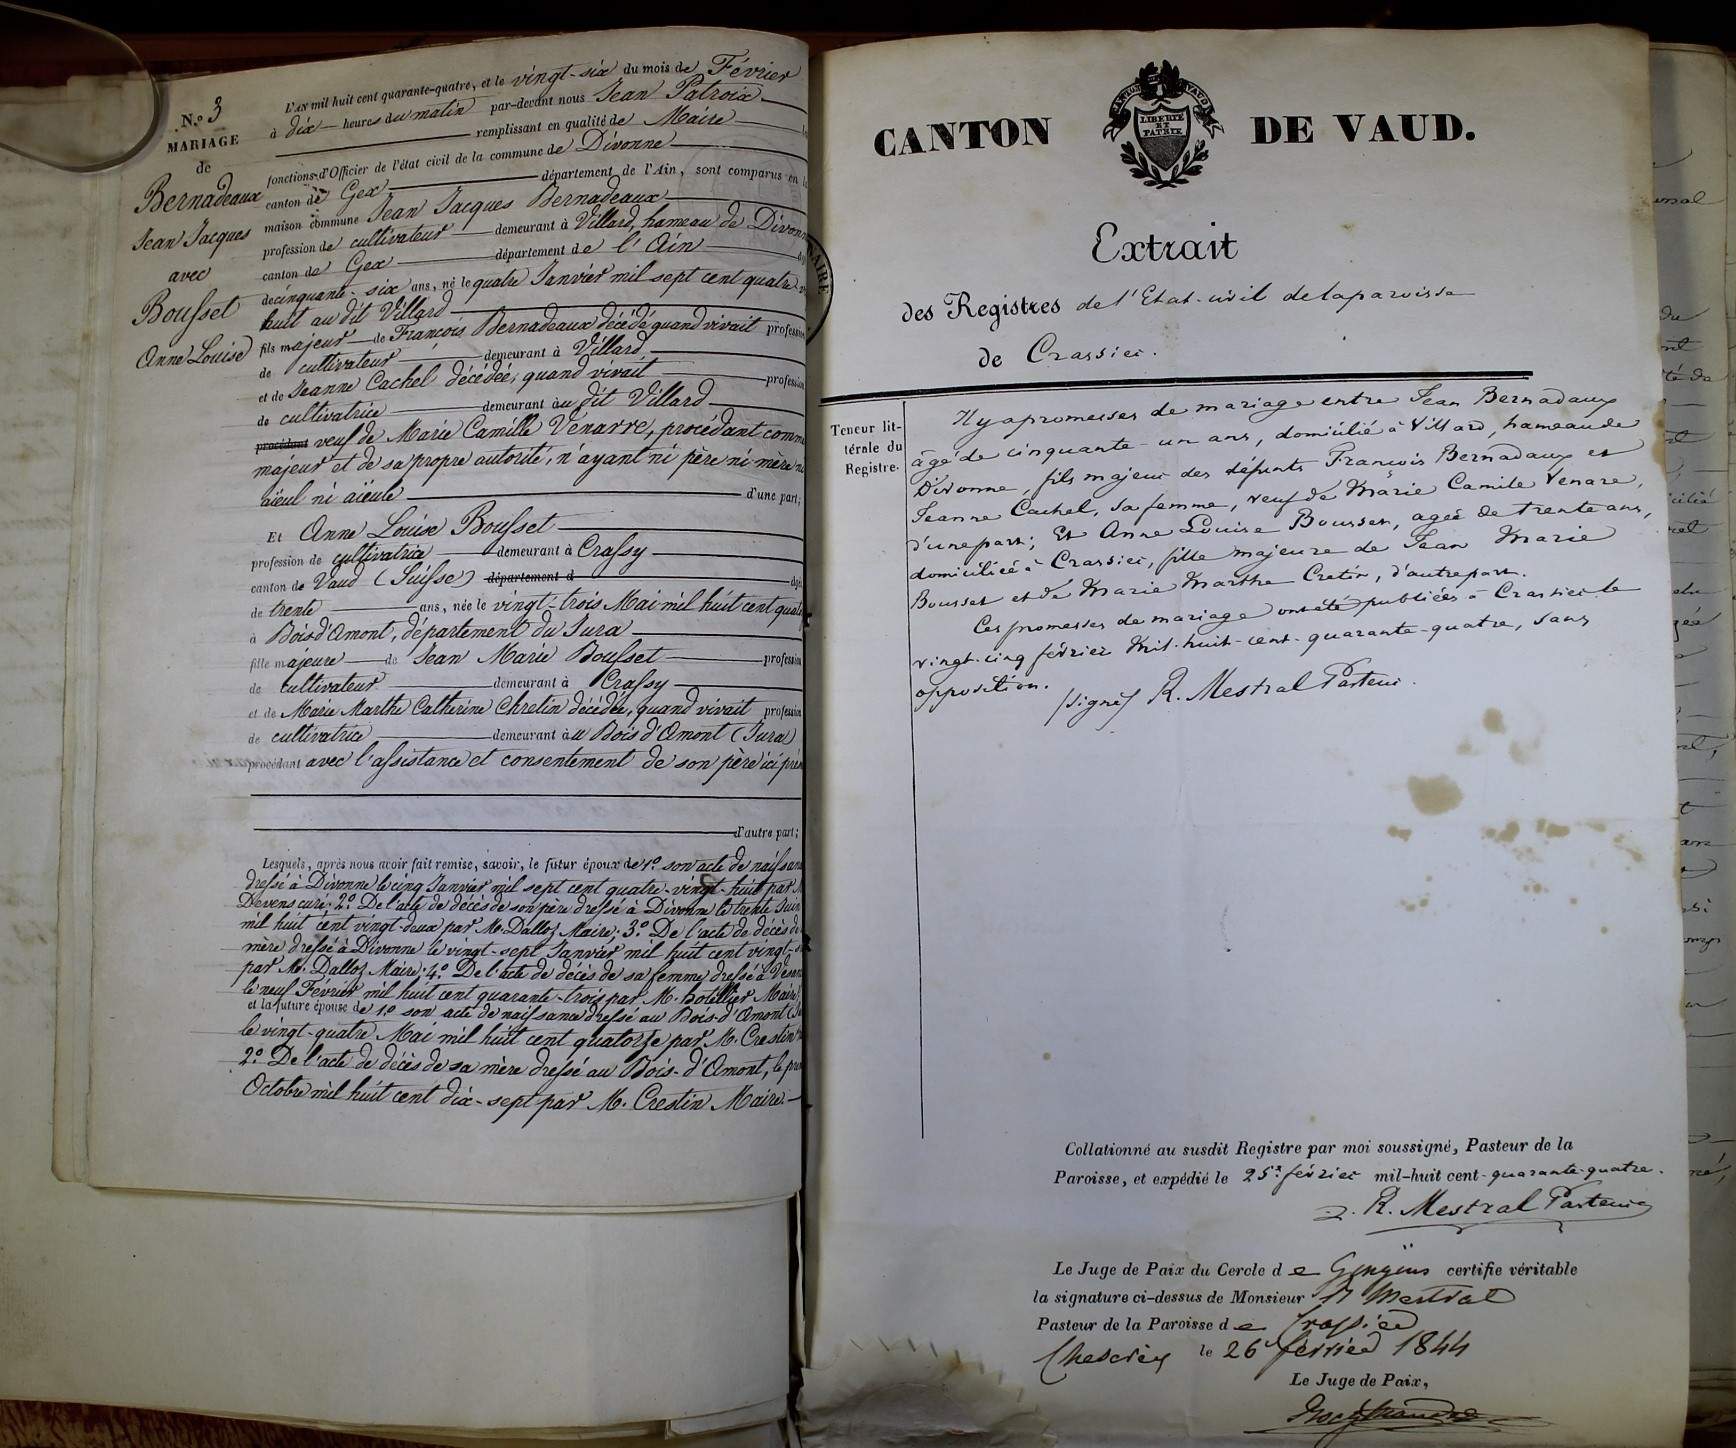 N.º 3
MARIAGE
de
Bernadeaux
Jean Jacques
avec
Bousset
Anne Louise
L'AN mil huit cent quarante-quatre, et le vingt-six du mois de Février
à dix heures du matin par-devant nous Jean Patroix
remplissant en qualité de Maire
fonctions d'Officier de l'état civil de la commune de Divonne
canton de Gex département de l'Ain, sont comparus en
maison commune Jean Jacques Bernadeaux
profession de cultivateur demeurant à Villard, hameau de Divonn
canton de Gex département de l'Ain
de cinquante-six ans, né le quatre Janvier mil sept cent quatre
huit au dit Villard
fils majeur de François Bernadeaux décédé quand vivait profession
de cultivateur demeurant à Villard
et de Jeanne Cachel décédée, quand vivait profession
de cultivatrice demeurant au dit Villard
procédant veuf de Marie Camille Vénarre, procédant comm
majeur et de sa propre autorité, n'ayant ni père ni mère
aïeul ni aïeule d'une part;
Et Anne Louise Bousset
profession de cultivatrice demeurant à Crassy
canton de Vaud (Suisse) département d
de trente ans, née le vingt-trois Mai mil huit cent quat
à Bois d'Amont, département du Jura
fille majeure de Jean Marie Bousset profession
de cultivateur demeurant à Crassy
et de Marie Marthe Catherine Chretin décédée, quand vivait profession
de cultivatrice demeurant au Bois d'Amont (Jura)
procédant avec l'assistance et consentement de son père ici pré
d'autre part;
Lesquels, après nous avoir fait remise, savoir, le futur époux de 1.º son acte de naissan
dressé à Divonne le cinq Janvier mil sept cent quatre-vingt-huit par M
Devens curé. 2.º De l'acte de décès de son père dressé à Divonne le trente Juin
mil huit cent vingt-deux par M. Dalloz Maire; 3.º De l'acte de décès de
mère dressé à Divonne le vingt-sept Janvier mil huit cent vingt
par M. Dalloz Maire. 4.º De l'acte de décès de sa femme dressé à
le neuf Février mil huit cent quarante-trois par M. hotellier Maire;
et la future épouse de 1.º son acte de naissance dressé au Bois-d'Amont
le vingt-quatre Mai mil huit cent quatorze par M. Crestin
2.º De l'acte de décès de sa mère dressé au Bois-d'Amont, le
Octobre mil huit cent dix-sept par M. Crestin Maire.
CANTON DE VAUD.
CANTON DE VAUD
LIBERTÉ
ET
PATRIE
Extrait
des Registres de l'Etat-civil de la paroisse
de Crassier.
Teneur lit-
térale du
Registre.
Il y a promesses de mariage entre Jean Bernadaux
âgé de cinquante-un ans, domicilié à Villard, hameau de
Divonne, fils majeur des défunts François Bernadaux et
Jeanne Cachel, sa femme, veuf de Marie Camile Venare,
d'une part; Et Anne Louise Bousset, agée de trente ans,
domiciliée à Crassier, fille majeure de Jean Marie
Bousset et de Marie Marthe Cretin, d'autre part.
Ces promesses de mariage ont été publiées à Crassier le
vingt-cinq février Mil-huit-cent-quarante-quatre, sans
opposition.
(signé) R. Mestral Pasteur.
Collationné au susdit Registre par moi soussigné, Pasteur de la
Paroisse, et expédié le 25.e février mil-huit cent-quarante-quatre.
R. Mestral Pasteur
Le Juge de Paix du Cercle de Gingins certifie véritable
la signature ci-dessus de Monsieur R Mestral
Pasteur de la Paroisse de Crassier
Cheserex le 26 février 1844
Le Juge de Paix,